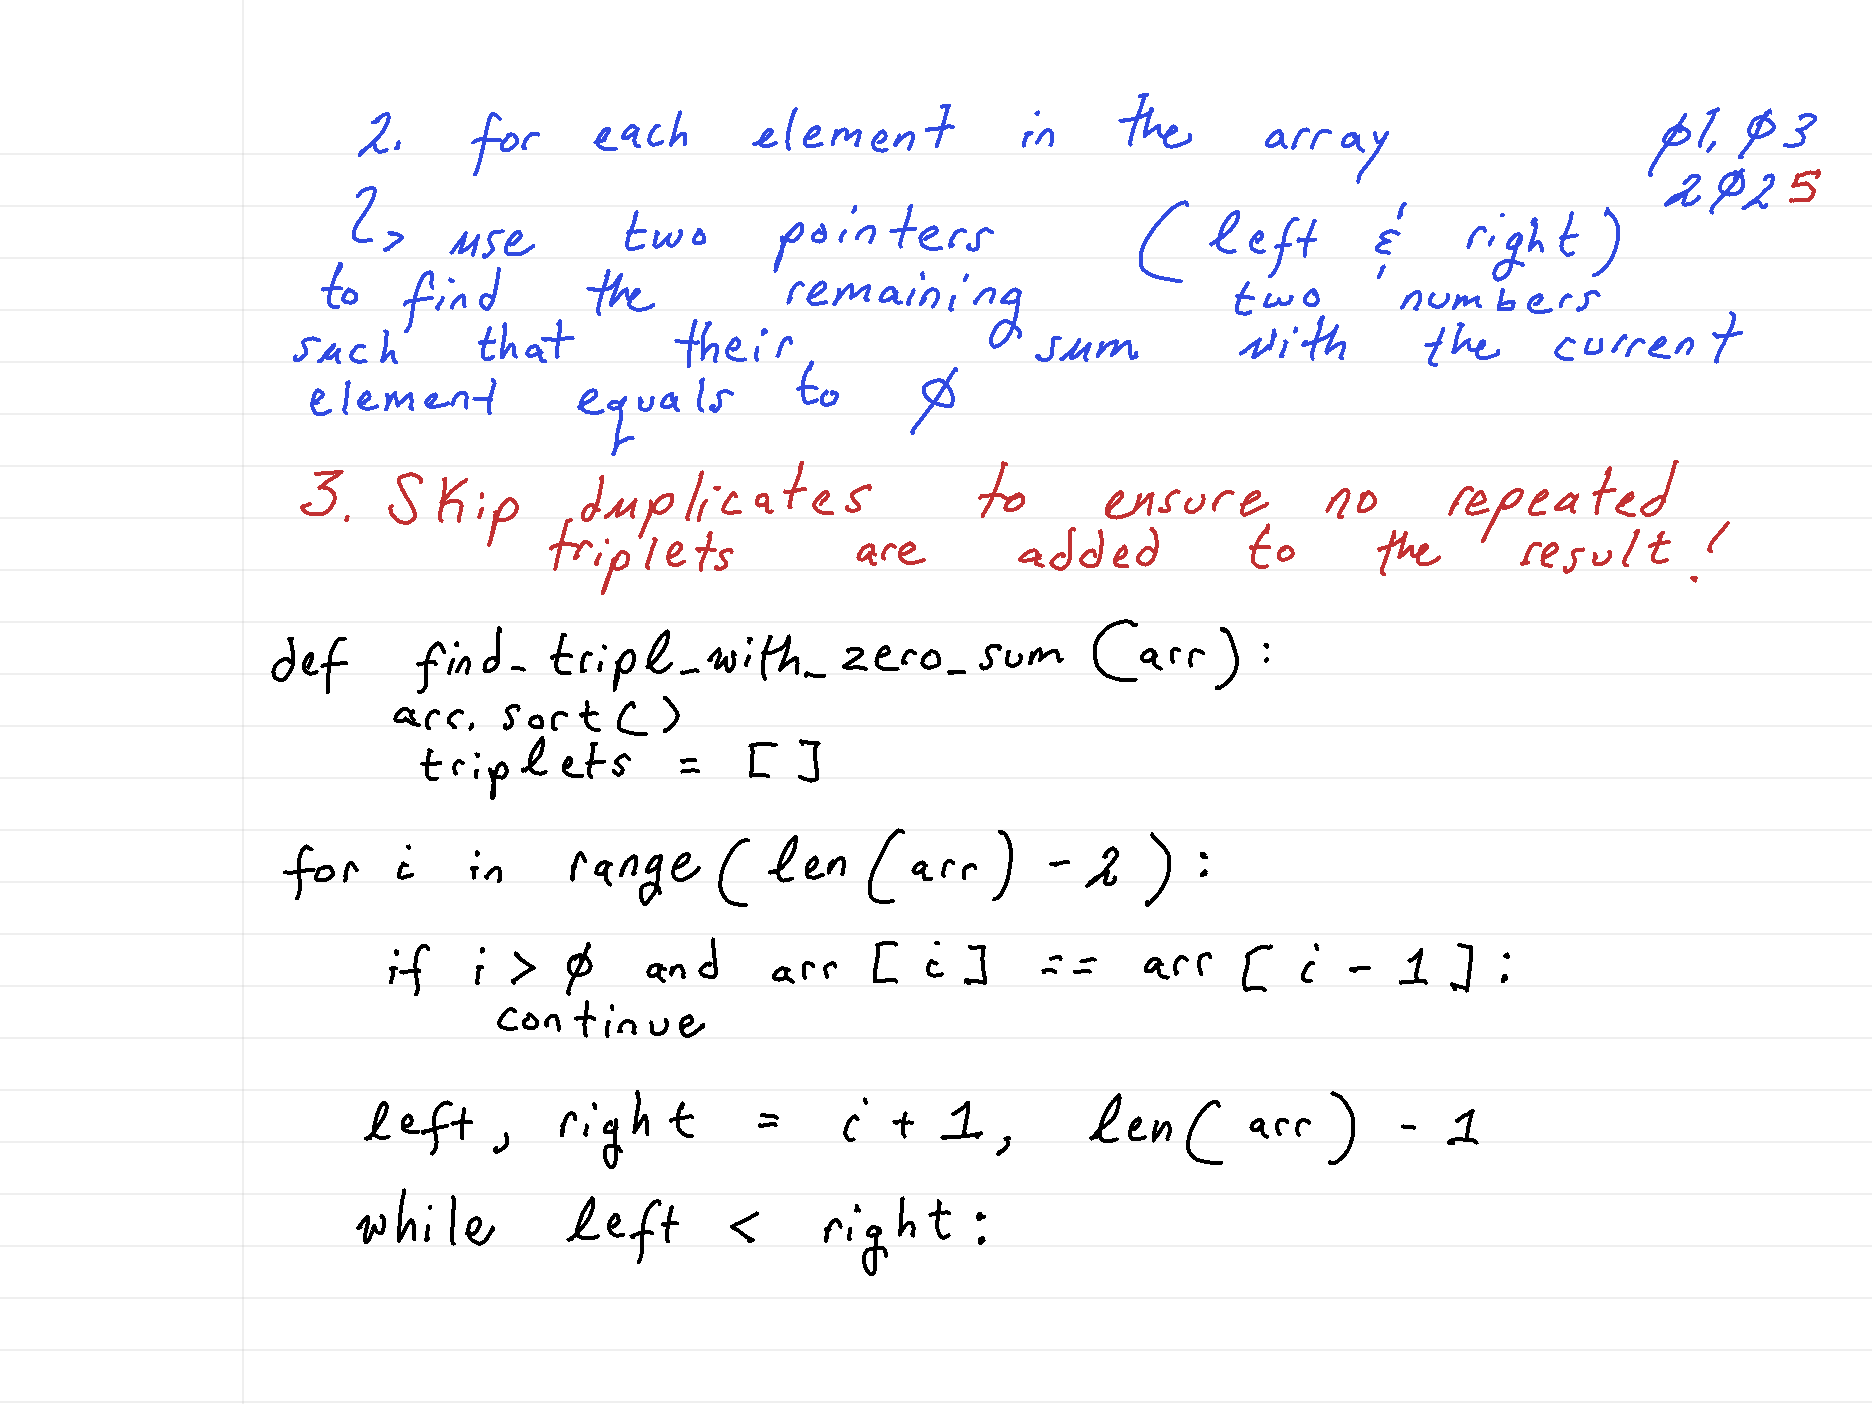 2. for each element in the array
ø1, ø3
2ø25
↳ use two pointers (left & right)
to find the remaining two numbers
such that their sum with the current
element equals to ø
3. Skip duplicates to ensure no repeated
triplets are added to the result!
def find_tripl_with_zero_sum (arr):
arr.sort()
triplets = []
for i in range(len(arr) - 2):
if i > ø and arr[i] == arr[i - 1]:
continue
left, right = i + 1, len(arr) - 1
while left < right: